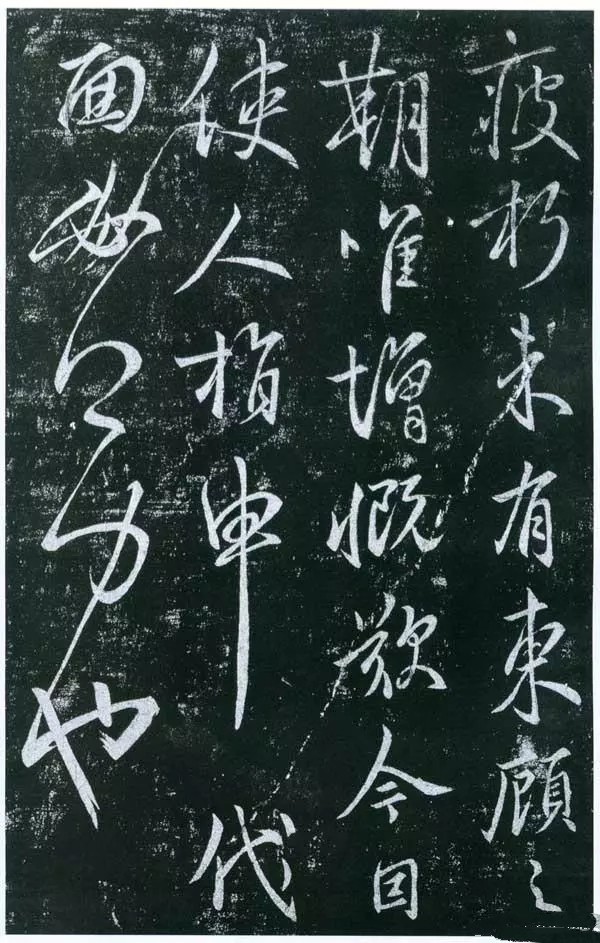 疲朽未有東顧之
期唯增慨歎今因
使人指申代
面力也